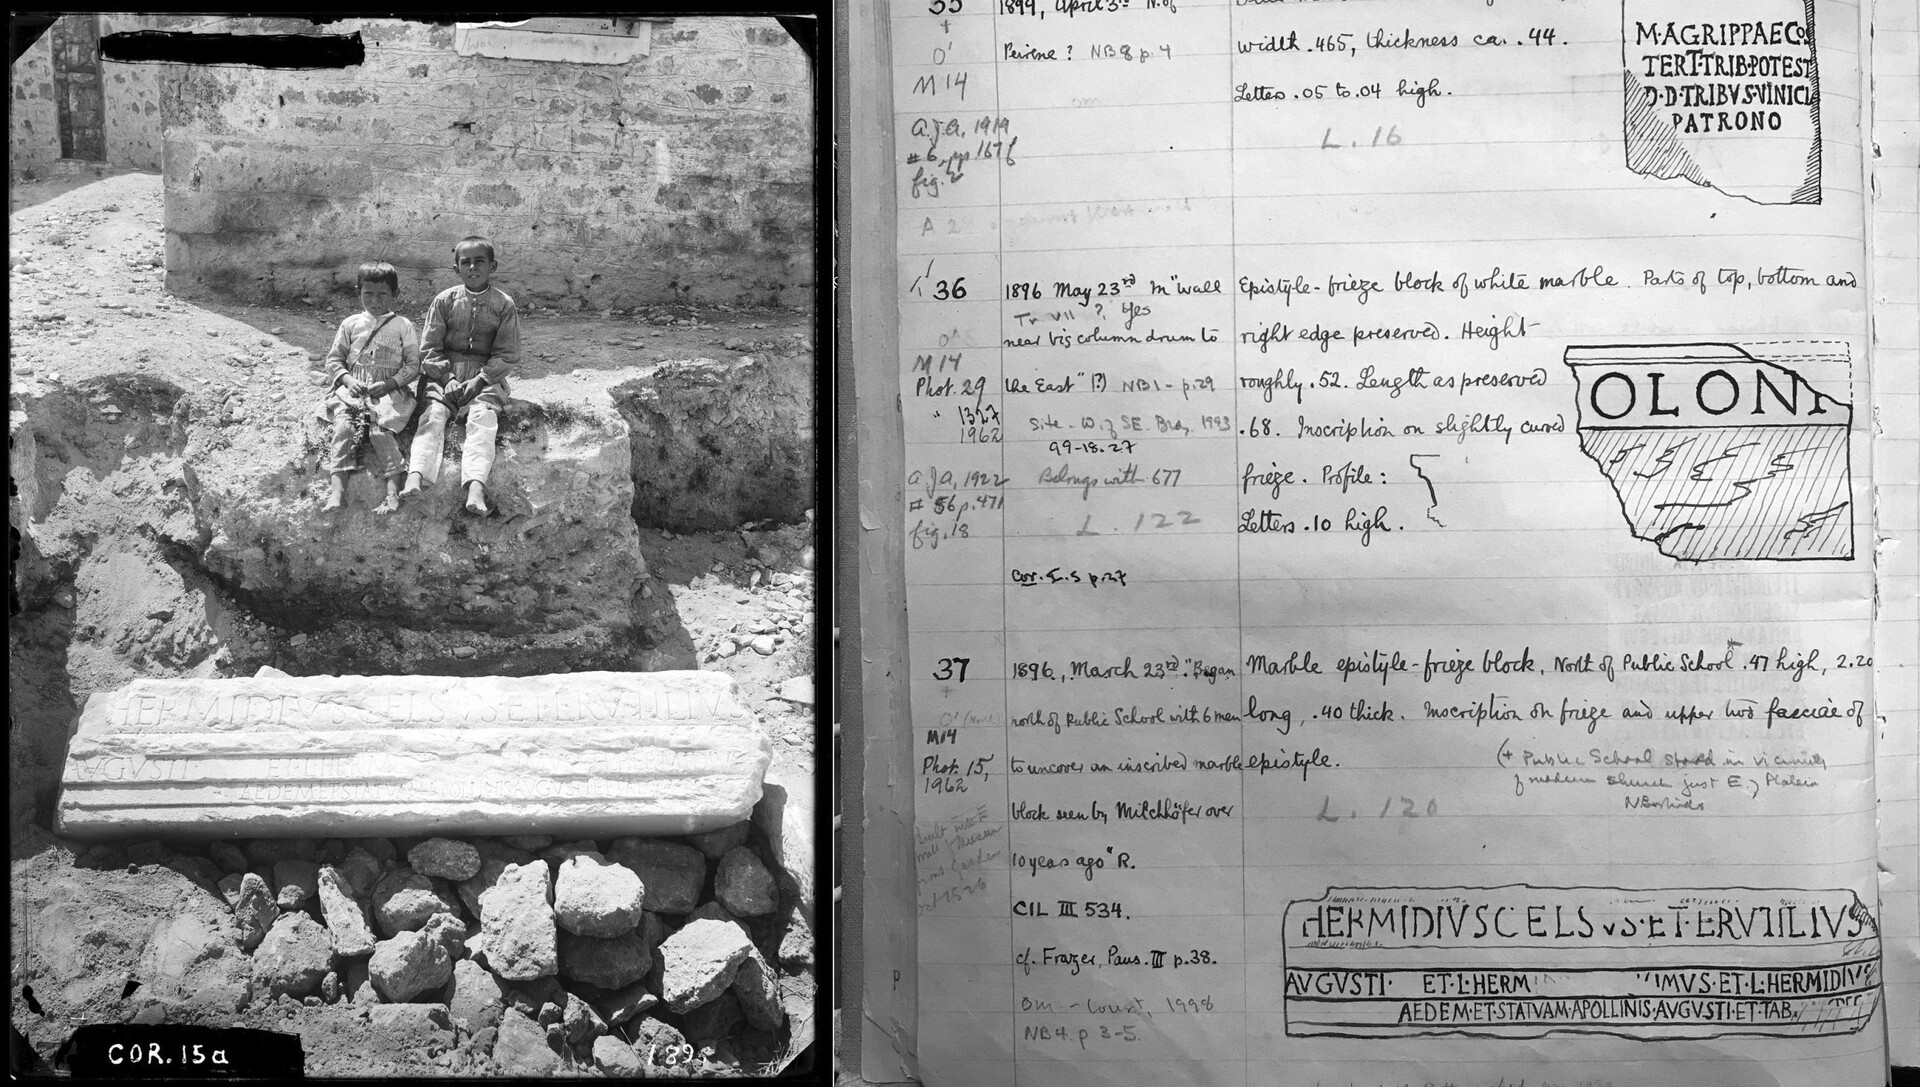 HERMIDIVS CELSVS ET RVTILIV
AVGVSTI
AEDEM ET STATVAM APOLLINIS AVGVSTI ET
COR. 15a
189
35
1899, April 3rd N. of
O'
Peirene ? NB 8 p. 4
M 14
A.J.A. 1919
# 6, pp 167 f
fig. 2
width .465, thickness ca. .44.
Letters .05 to .04 high.
L. 16
M·AGRIPPAE CO
TERT·TRIB·POTEST
D·D·TRIBVS·VINICI
PATRONO
36
1896 May 23rd in "wall
Tr VII ? Yes
near big column drum to
M 14
Phot. 29
the East" (?) NB 1 - p. 29
" 1327
1962
Site - W. of SE. Bldg, 1993
99-18.27
A.J.A., 1922
Belongs with 677
# 56 p. 471
fig. 18
L. 122
Cor. I. 5 p. 27
Epistyle-frieze block of white marble. Parts of top, bottom and
right edge preserved. Height
roughly .52. Length as preserved
.68. Inscription on slightly curved
frieze. Profile:
Letters .10 high.
OLONI
37
1896, March 23rd. "Began
O' (North)
north of Public School with 6 men
M14
Phot. 15,
1962
to uncover an inscribed marble
block seen by Milchhöfer over
10 years ago" R.
CIL III 534.
cf. Frazer, Paus. III p. 38.
Court, 1998
NB 4. p 3-5.
Marble epistyle-frieze block, North of Public School+ .47 high, 2.20
long, .40 thick. Inscription on frieze and upper two fasciae of
epistyle.
(+ Public School stood in vicinity
of modern church just E. of Plateia
L. 120
HERMIDIVS CELSVS·ET·RVTILIVS
AVGVSTI· ET·L·HERM IMVS·ET·L·HERMIDIVS
AEDEM·ET·STATVAM·APOLLINIS·AVGVSTI·ET·TAB